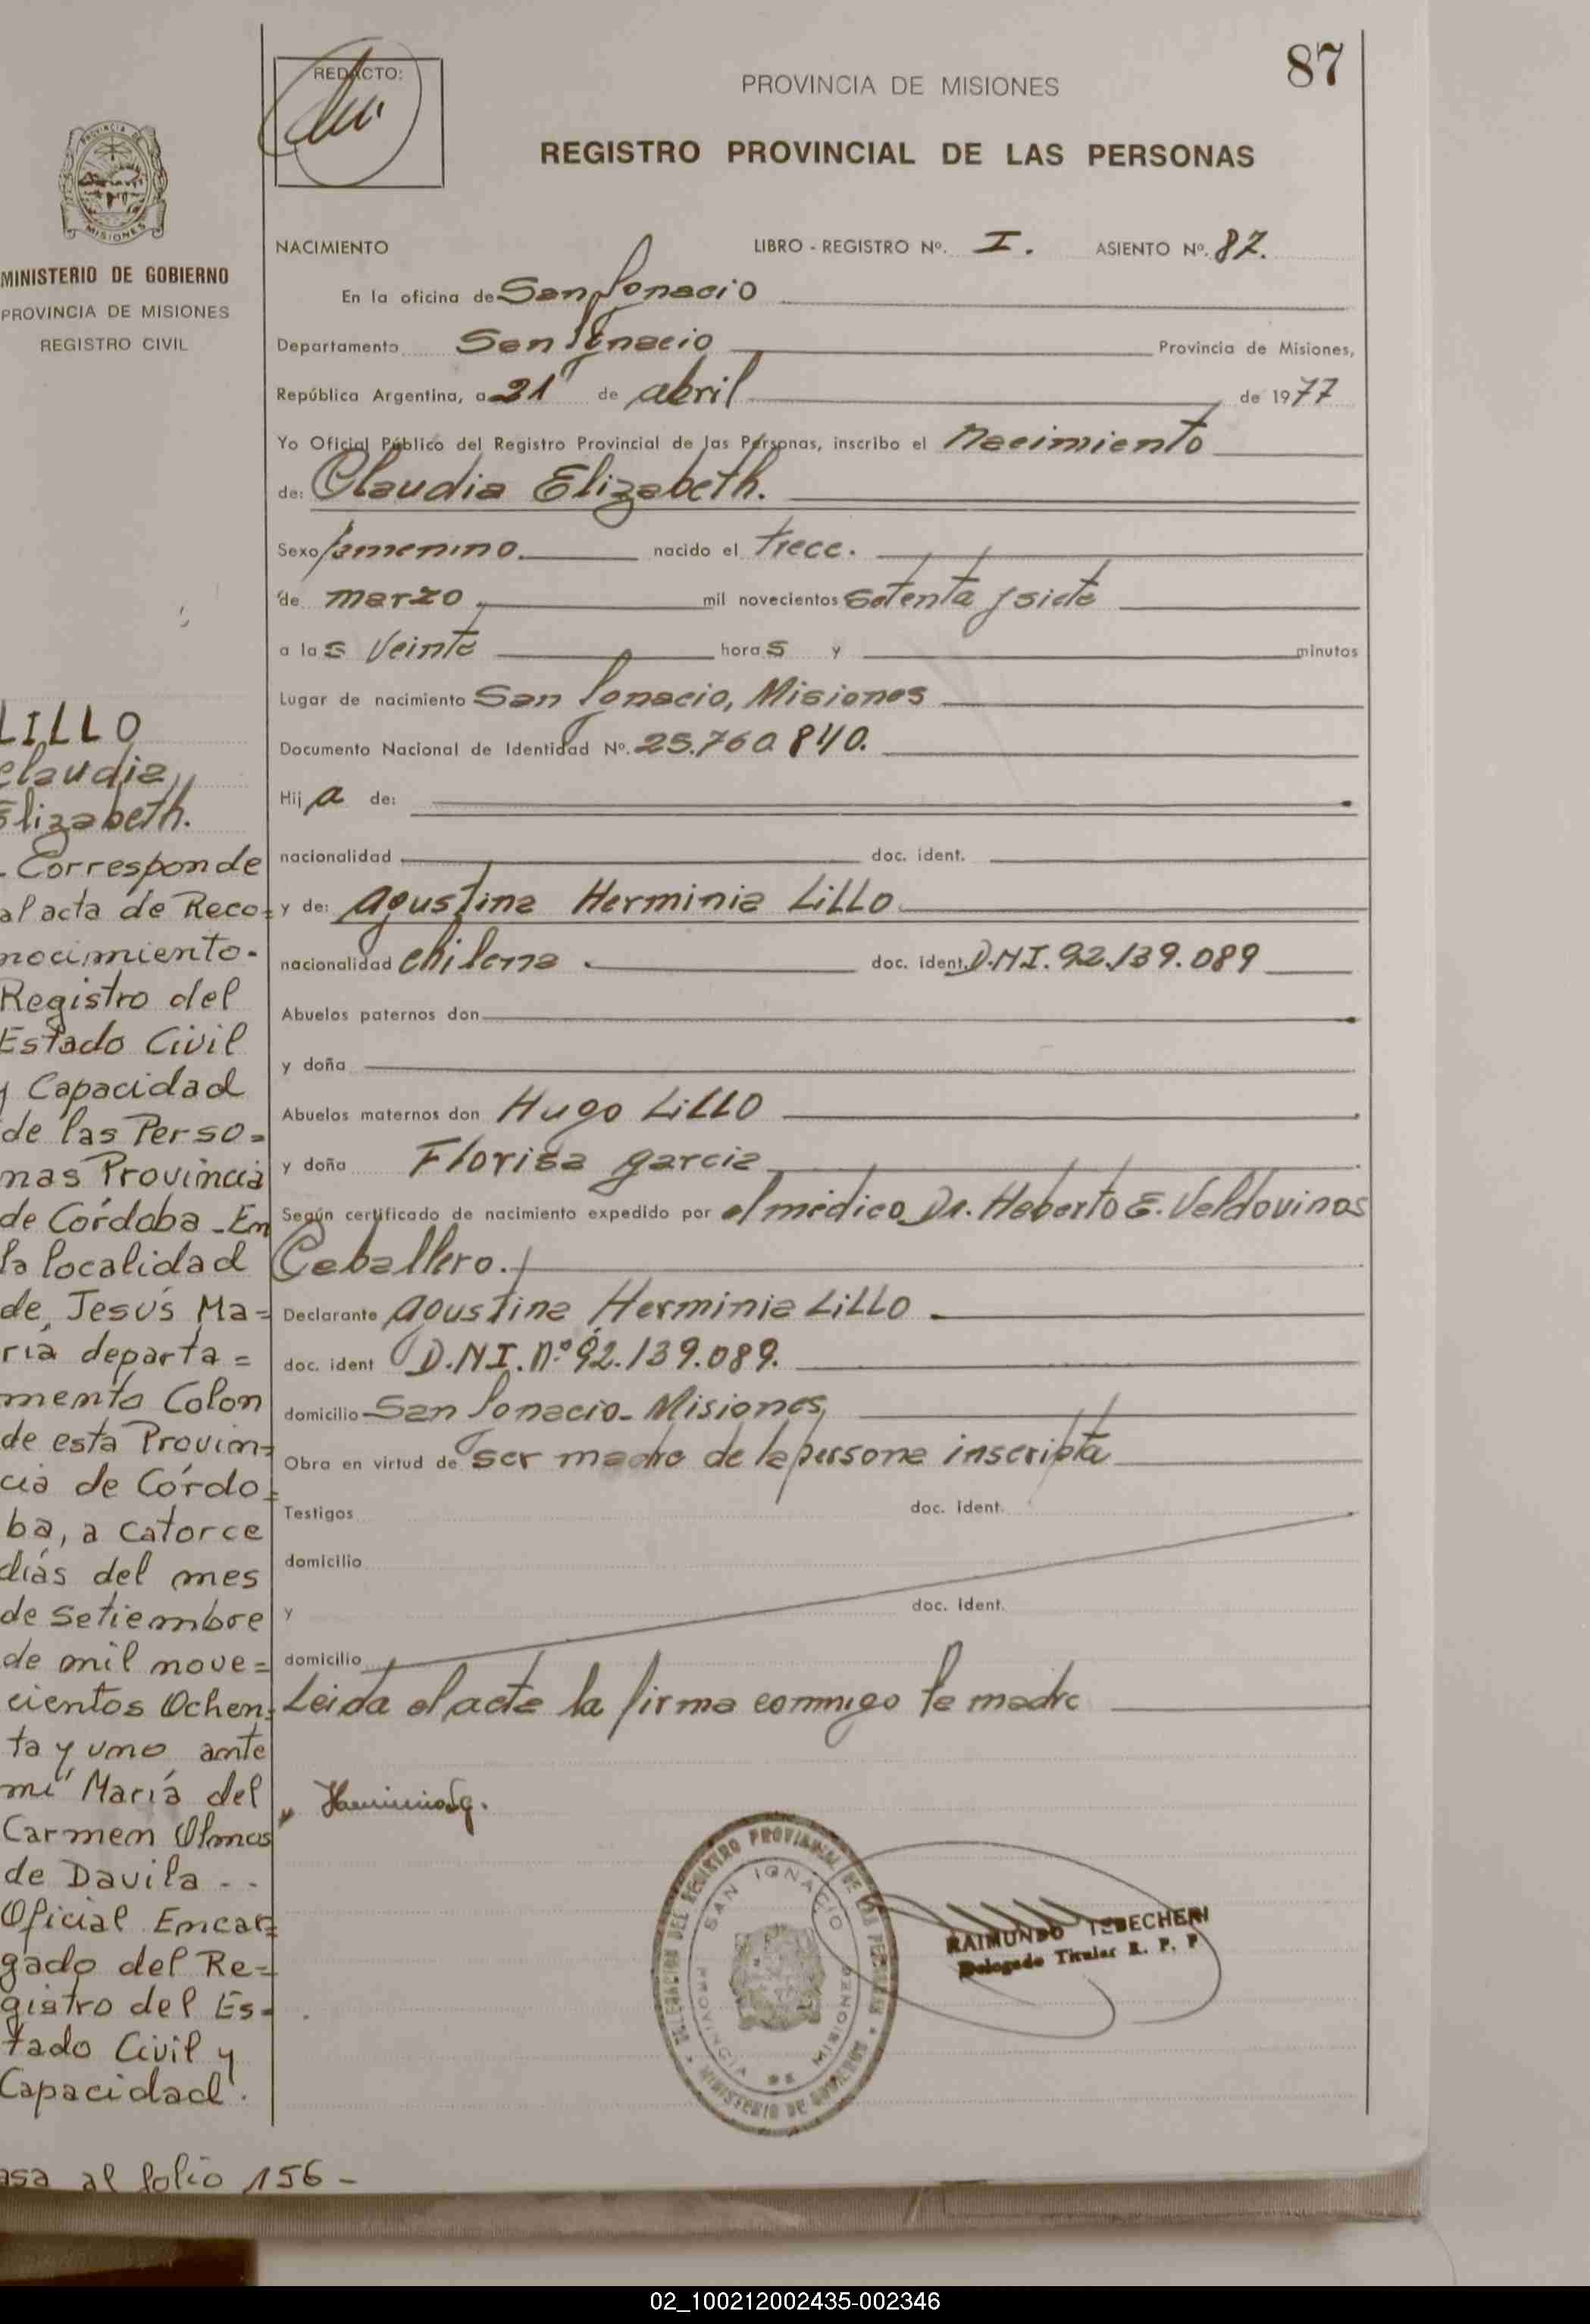 87
REDACTO:
PROVINCIA DE MISIONES
REGISTRO PROVINCIAL DE LAS PERSONAS
PROVINCIA DE
MISIONES
MINISTERIO DE GOBIERNO
PROVINCIA DE MISIONES
REGISTRO CIVIL
NACIMIENTO LIBRO - REGISTRO Nº. I. ASIENTO Nº. 87.
En la oficina de San Ignacio
Departamento San Ignacio Provincia de Misiones,
República Argentina, a 21 de abril de 1977
Yo Oficial Público del Registro Provincial de las Personas, inscribo el Nacimiento
de: Claudia Elizabeth.
Sexo femenino. nacido el trece.
de marzo mil novecientos setenta y siete
a las veinte horas y minutos
Lugar de nacimiento San Ignacio, Misiones
Documento Nacional de Identidad Nº. 25.760.840.
Hija de:
nacionalidad doc. ident.
y de: Agustina Herminia Lillo
nacionalidad chilena. doc. ident. D.N.I. 92.139.089
Abuelos paternos don
y doña
Abuelos maternos don Hugo Lillo
y doña Florisa Garcia
Según certificado de nacimiento expedido por el médico Dr. Heberto E. Valdovinos
Caballero.
Declarante Agustina Herminia Lillo
doc. ident D.N.I. Nº 92.139.089.
domicilio San Ignacio - Misiones
Obra en virtud de ser madre de la persona inscripta
Testigos doc. ident.
domicilio
y doc. ident.
domicilio
Leida el acta la firma conmigo la madre
LILLO
Claudia
Elizabeth.
Corresponde
al acta de Reco=
nocimiento.
Registro del
Estado Civil
y Capacidad
de las Perso=
nas Provincia
de Córdoba - En
la localidad
de Jesús Ma=
ría departa=
mento Colon
de esta Provin=
cia de Córdo=
ba, a catorce
días del mes
de Setiembre
de mil nove=
cientos Ochen=
ta y uno ante
mí María del
Carmen Olmos
de Davila - -
Oficial Encar=
gado del Re=
gistro del Es=
tado Civil y
Capacidad.
asa al folio 156 -
DELEGACION DEL REGISTRO PROVINCIAL DE LAS PERSONAS
MINISTERIO DE GOBIERNO
SAN IGNACIO
PROVINCIA DE MISIONES
RAIMUNDO TEBECHERI
Delegado Titular R. P. P
02_100212002435-002346